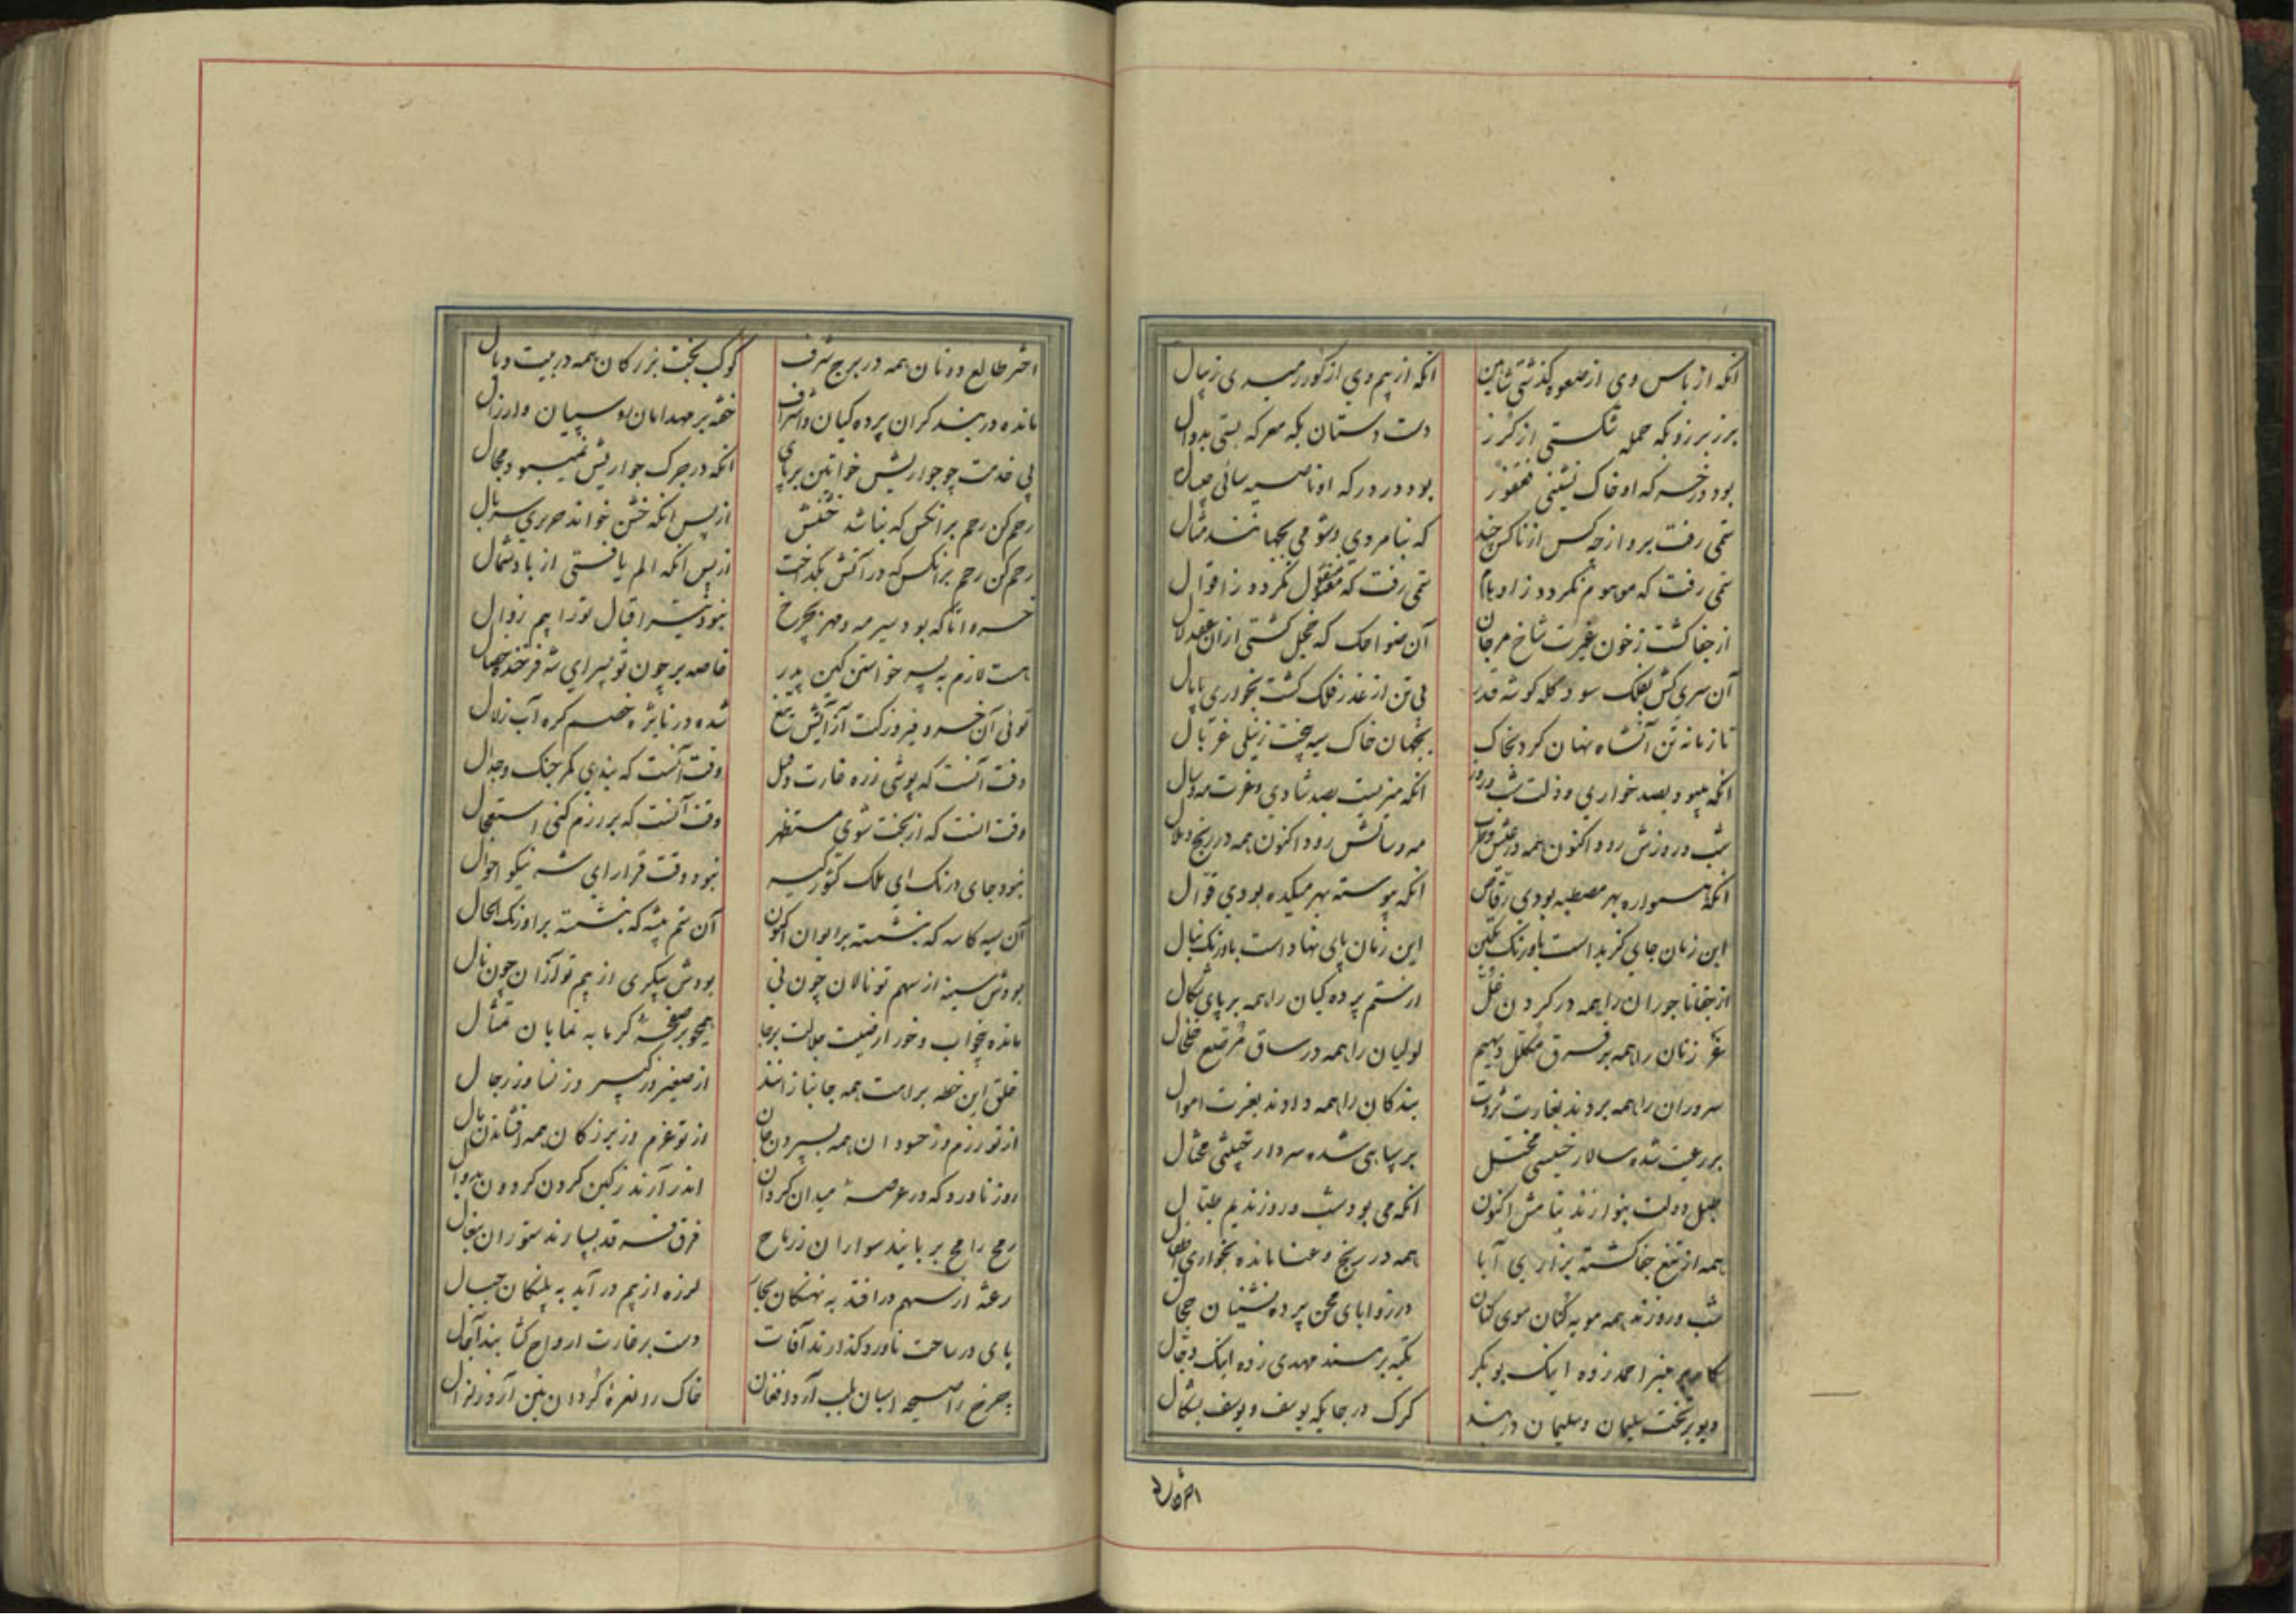 انکه از باس وی از صعوه کذشتی شاهین انکه از بیم وی از کور رمیدی رئبال
برز برزو بکه حمله شکستی از کرز دست دستان بکه معرکه بستی بدوال
بود در خسر که او خاک نشینی فغفور بود در در که او ناصیه سائی
ستمی رفت برو از چه کس از ناکس چند که بنامردی و شومی بجهانند مثال
ستمی رفت که موهوم نکردد ز اوهام ستمی رفت که منقول نکردد ز اقوال
از جفا کشت ز خون غیرت شاخ مرجان آن ضواحک که خجل کشتی ازان عقد لال
آن سری کش بفلک سود کله کوشه قدر بی تن از غدر فلک کشت بخواری پامال
تا زمانه تن آنشاه نهان کرد بخاک بجهان خاک سیه بیخت ز نیلی غربال
انکه میبود بصد خواری و ذلت شب و روز انکه میزیست بصد شادی و عزت مه و سال
شب و روزش رود اکنون همه در عیش و طرب مه و سالش رود اکنون همه در رنج و ملال
انکه همواره بهر مصطبه بودی رقاص انکه پیوسته بهر میکده بودی قوال
این زمان جای کزیداست باورنک نکین این زمان پای نهاداست باورنک نیال
از جفا تاجوران را همه در کردن غل از ستم پرده کیان را همه بر پای شکال
غر زنان را همه بر فرق مکلل دیهیم لولیان را همه در ساق مرصع خلخال
سروران را همه بردند بغارت ثروت بندکان را همه دادند بعزت اموال
بر رعیت شده سالار خسیسی مختل بر سپاهی شده سردار خبیثی محتال
طبل دولت بنوازند بنامش اکنون انکه می بود شب و روز ندیم طبال
همه از تیغ جفا کشته بزاری آبا همه در رنج و عنا مانده بخواری اطفال
شب و روزند همه مویه کنان موی کنان در زوایای محن پرده نشینان حجال
کام بر منبر احمد زده اینک بوبکر تکیه بر مسند مهدی زده اینک دجال
دیو بر تخت سلیمان و سلیمان در بند کرک در جایکه یوسف و یوسف بشکال
اختر طالع
اختر طالع دونان همه در برج شرف کوکب بخت بزرکان همه در بیت وبال
مانده در بند کران پرده کیان و اشراف خفته بر مهد امان روسپیان و ارزال
پی خدمت چو جواریش خواتین بر پای انکه در جرک جواریش نمیبود مجال
رحم کن رحم بر انکس که بناشد خفتش از پس انکه خشن خواند حریری سربال
رحم کن رحم بر انکس که در آتش بکداخت از پس انکه الم یافتی از باد شمال
خسروا تا که بود سیر مه و مهر بچرخ نبود نیر اقبال تو را بیم زوال
هست لازم به پسر خواستن کین پدر خاصه بر چون تو پسر ای شه فرخنده خصال
توئی آن خسرو فیروز کت از آتش تیغ شده در نایژه خصم کره آب زلال
وقت آنست که پوشی زره غارت و قتل وقت آنست که بندی کمر جنک و جدال
وقت انست که از بخت شوی مستظهر وقت آنست که بر رزم کنی استعجال
نبود جای درنک ای ملک کشورکیر نبود وقت قرار ای شه نیکو احوال
آن سیه کاسه که بنشسته بر ایوان اکنون آن ستم پیشه که بنشسته بر اورنک الحال
بودش سینه از سهم تو نالان چون نی بودش پیکری از بیم تو لرزان چون نال
مانده بیخواب و خور از هیبت جلالت برجا همچو بر صفحه کرمابه نمایان تمثال
خلق این خطه براهت همه جانبازانند از صغیر و ز کبیر و ز نسا و ز رجال
از تو رزم و ز حسودان همه بسپردن جان وز تو عزم و ز بزرکان همه افشاندن مال
روز ناورد که در عرصه میدان کردان اندر آرند ز کین کردن کردون بدوال
رمح رامح بربایند سواران ز رماح فرق فرقد بسپارند ستوران بنعال
رعشه از سهم در افتد به نهنکان بحار لرزه از بیم در آید به پلنکان جبال
پای در ساحت ناورد کذارند آفات دست بر غارت ارواح کشایند آجال
چرخ را صیحه اسبان بلب آرد افغان خاک را نعره کردان بتن آرد زلزال